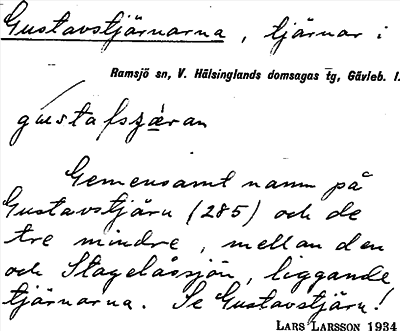 Gustavstjärnarna, tjärnar i
Ramsjö sn, V. Hälsinglands domsagas tg, Gävleb. l.
gústafszæ̀ran
Gemensamt namn på
Gustavstjärn (285) och de
tre mindre, mellan den
och Stagelåssjön, liggande
tjärnarna. Se Gustavstjärn!
LARS LARSSON 1934